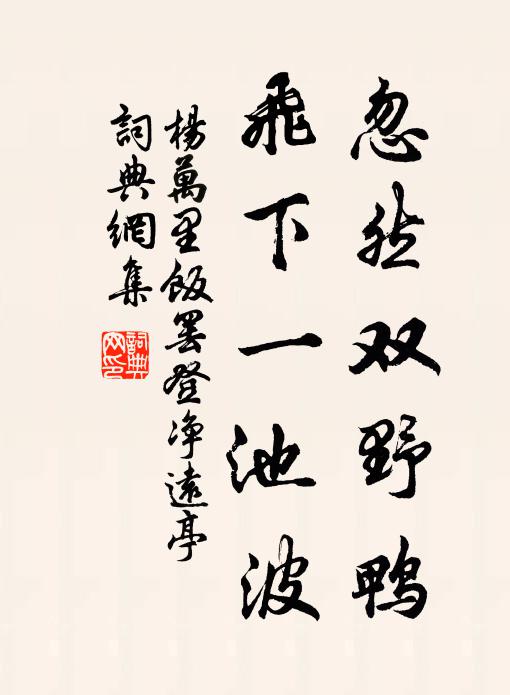 忽然双野鸭
飛下一池波
楊萬里飯罢登净遠亭
詞典網集
詞典网印